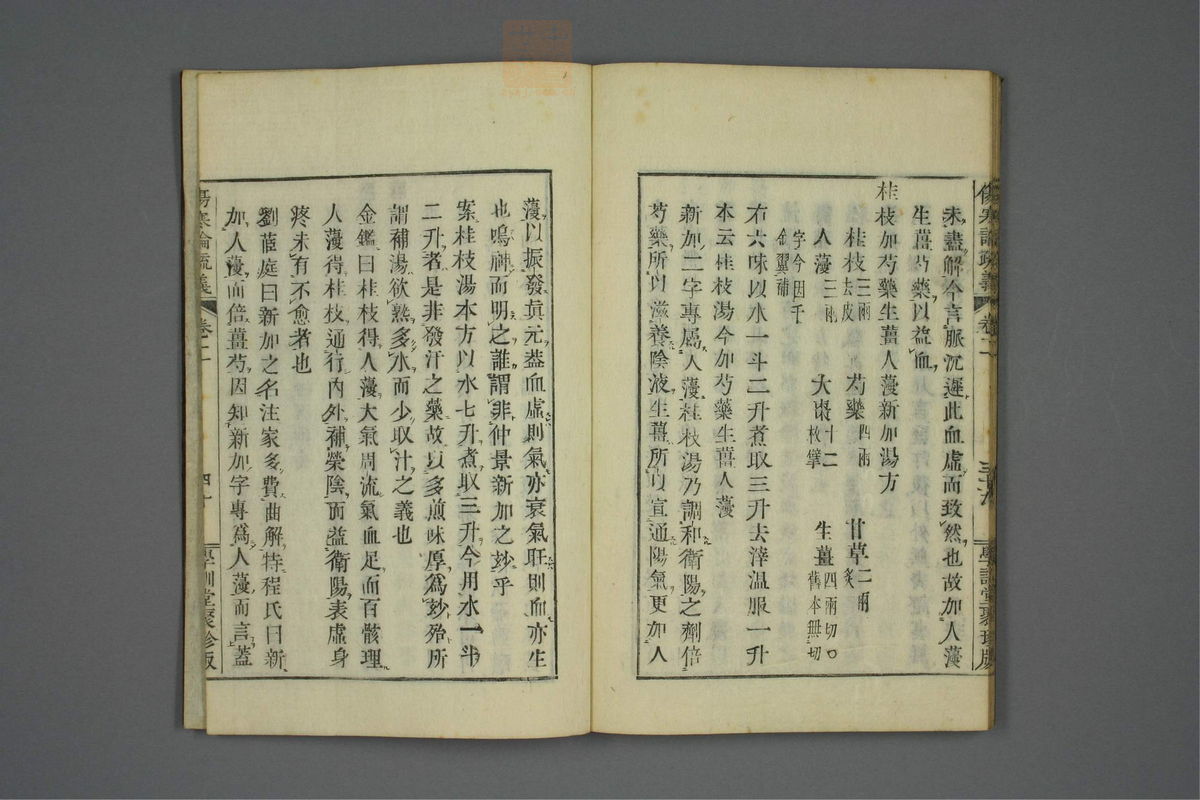 未盡解今言脈沉遲此血虛而致然也故加人薓
生薑芍藥以益血
桂枝加芍藥生薑人薓新加湯方
桂枝三兩去皮 芍藥四兩 甘草二兩炙
人薓三兩 大棗十二枚擘 生薑四兩切○舊本無切
字今因千金翼補
右六味以水一斗二升煮取三升去滓温服一升
本云桂枝湯今加芍藥生薑人薓
新加二字專屬人薓桂枝湯乃調和衛陽之劑倍
芍藥所以滋養陰液生薑所以宣通陽氣更加人
薓以振發眞元葢血虛則氣亦衰氣旺則血亦生
也嗚神而明之誰謂非仲景新加之妙乎
案桂枝湯本方以水七升煮取三升今用水一斗
二升者是非發汗之藥故以多煎味厚爲妙殆所
謂補湯欲熟多水而少取汁之義也
金鑑曰桂枝得人薓大氣周流氣血足而百骸理
人薓得桂枝通行内外補榮陰而益衛陽表虛身
疼未有不愈者也
劉茝庭曰新加之名注家多費曲解特程氏曰新
加人薓而倍薑芍因知新加字專爲人薓而言蓋
傷寒論疏義 卷二
學訓堂聚珍版